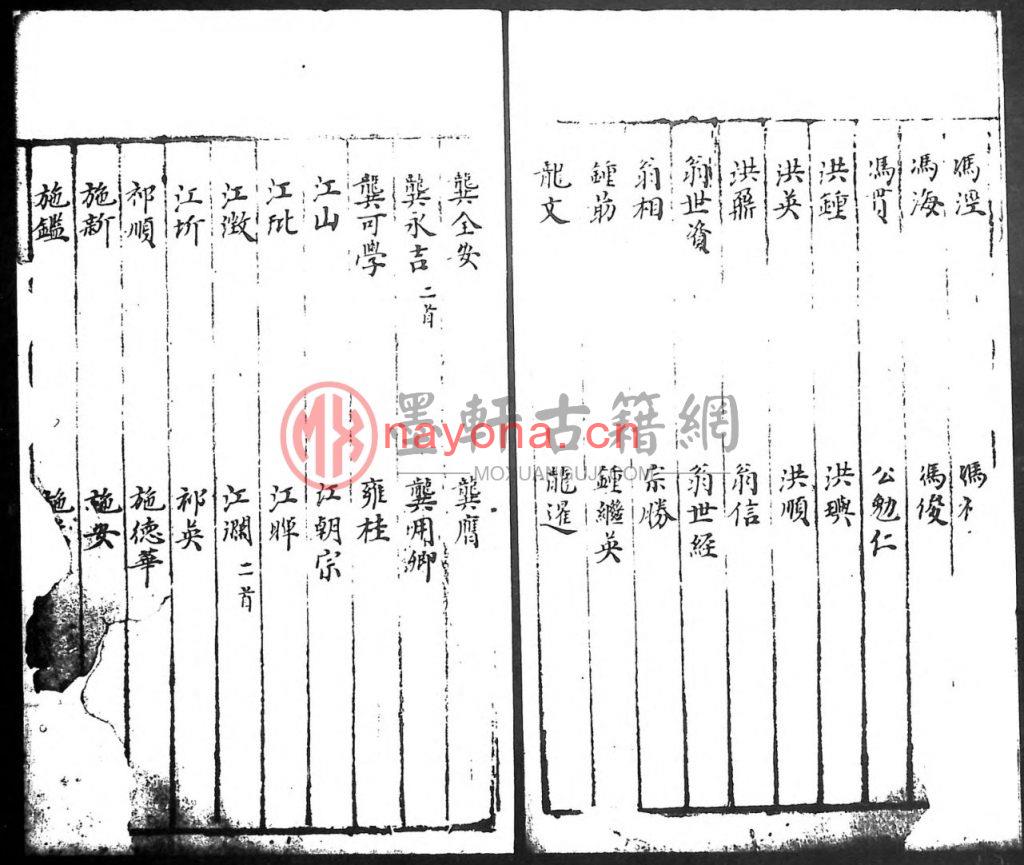 馮 馮
馮海 馮俊
馮 公勉仁
洪鍾 洪
洪英 洪順
洪鼐 翁信
翁世資 翁世經
翁相 宗勝
鍾 鍾繼英
龍文 龍暹
龔全安 龔膺
龔永吉 二首 龔用卿
龔可學 雍桂
江山 江朝宗
江玭 江暉
江澂 江瀾 二首
江圻 祁英
祁順 施德華
施新 施安
施鑑 施
墨軒古籍網
nayona.cn
MOXUANGUJI.COM